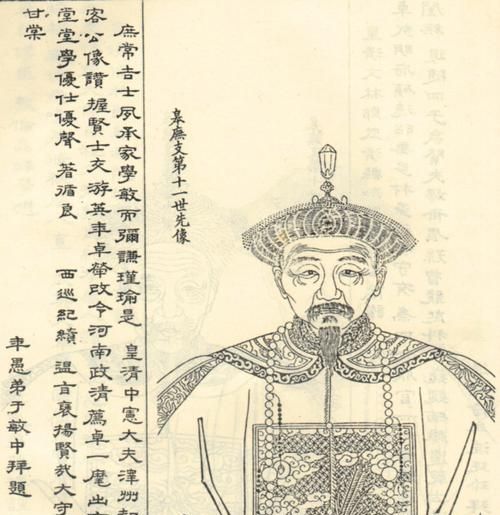 皋廡支第十一世先像
庶常吉士夙承家學敏而彌謙瑾瑜是 皇清中憲大夫澤州知
客公像讚 握賢士交游英年卓犖改令河南政清薦卓一麾出守
堂堂學優仕優聲 著循良 西巡紀績 溫言褒揚賢哉大守
甘棠
年愚弟于敏中拜題